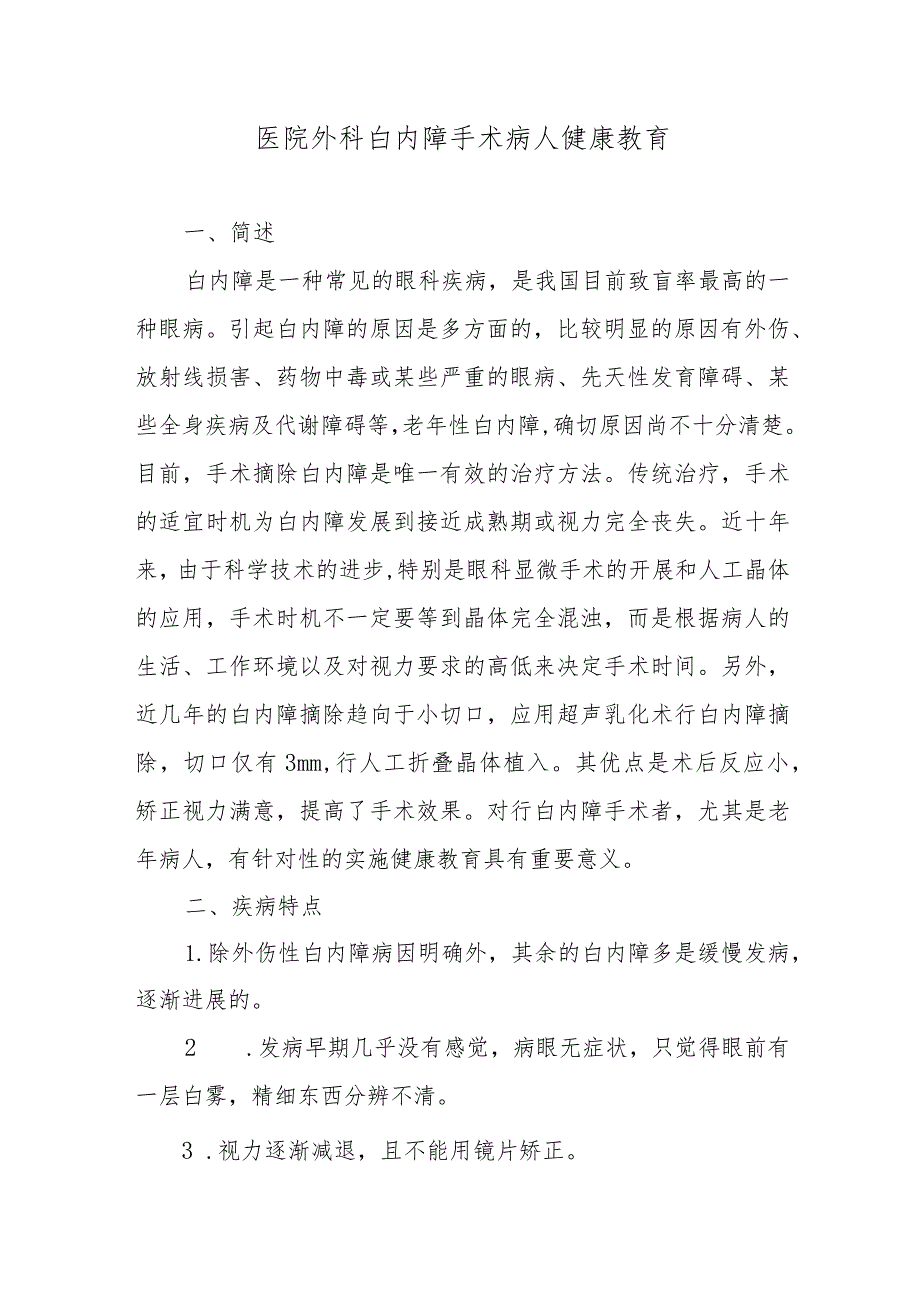 医院外科白内障手术病人健康教育
一、简述
白内障是一种常见的眼科疾病，是我国目前致盲率最高的一
种眼病。引起白内障的原因是多方面的，比较明显的原因有外伤、
放射线损害、药物中毒或某些严重的眼病、先天性发育障碍、某
些全身疾病及代谢障碍等,老年性白内障,确切原因尚不十分清楚。
目前，手术摘除白内障是唯一有效的治疗方法。传统治疗，手术
的适宜时机为白内障发展到接近成熟期或视力完全丧失。近十年
来，由于科学技术的进步,特别是眼科显微手术的开展和人工晶体
的应用，手术时机不一定要等到晶体完全混浊，而是根据病人的
生活、工作环境以及对视力要求的高低来决定手术时间。另外，
近几年的白内障摘除趋向于小切口，应用超声乳化术行白内障摘
除，切口仅有3mm,行人工折叠晶体植入。其优点是术后反应小，
矫正视力满意，提高了手术效果。对行白内障手术者，尤其是老
年病人，有针对性的实施健康教育具有重要意义。
二、疾病特点
1.除外伤性白内障病因明确外，其余的白内障多是缓慢发病，
逐渐进展的。
2 .发病早期几乎没有感觉，病眼无症状，只觉得眼前有
一层白雾，精细东西分辨不清。
3 .视力逐渐减退，且不能用镜片矫正。